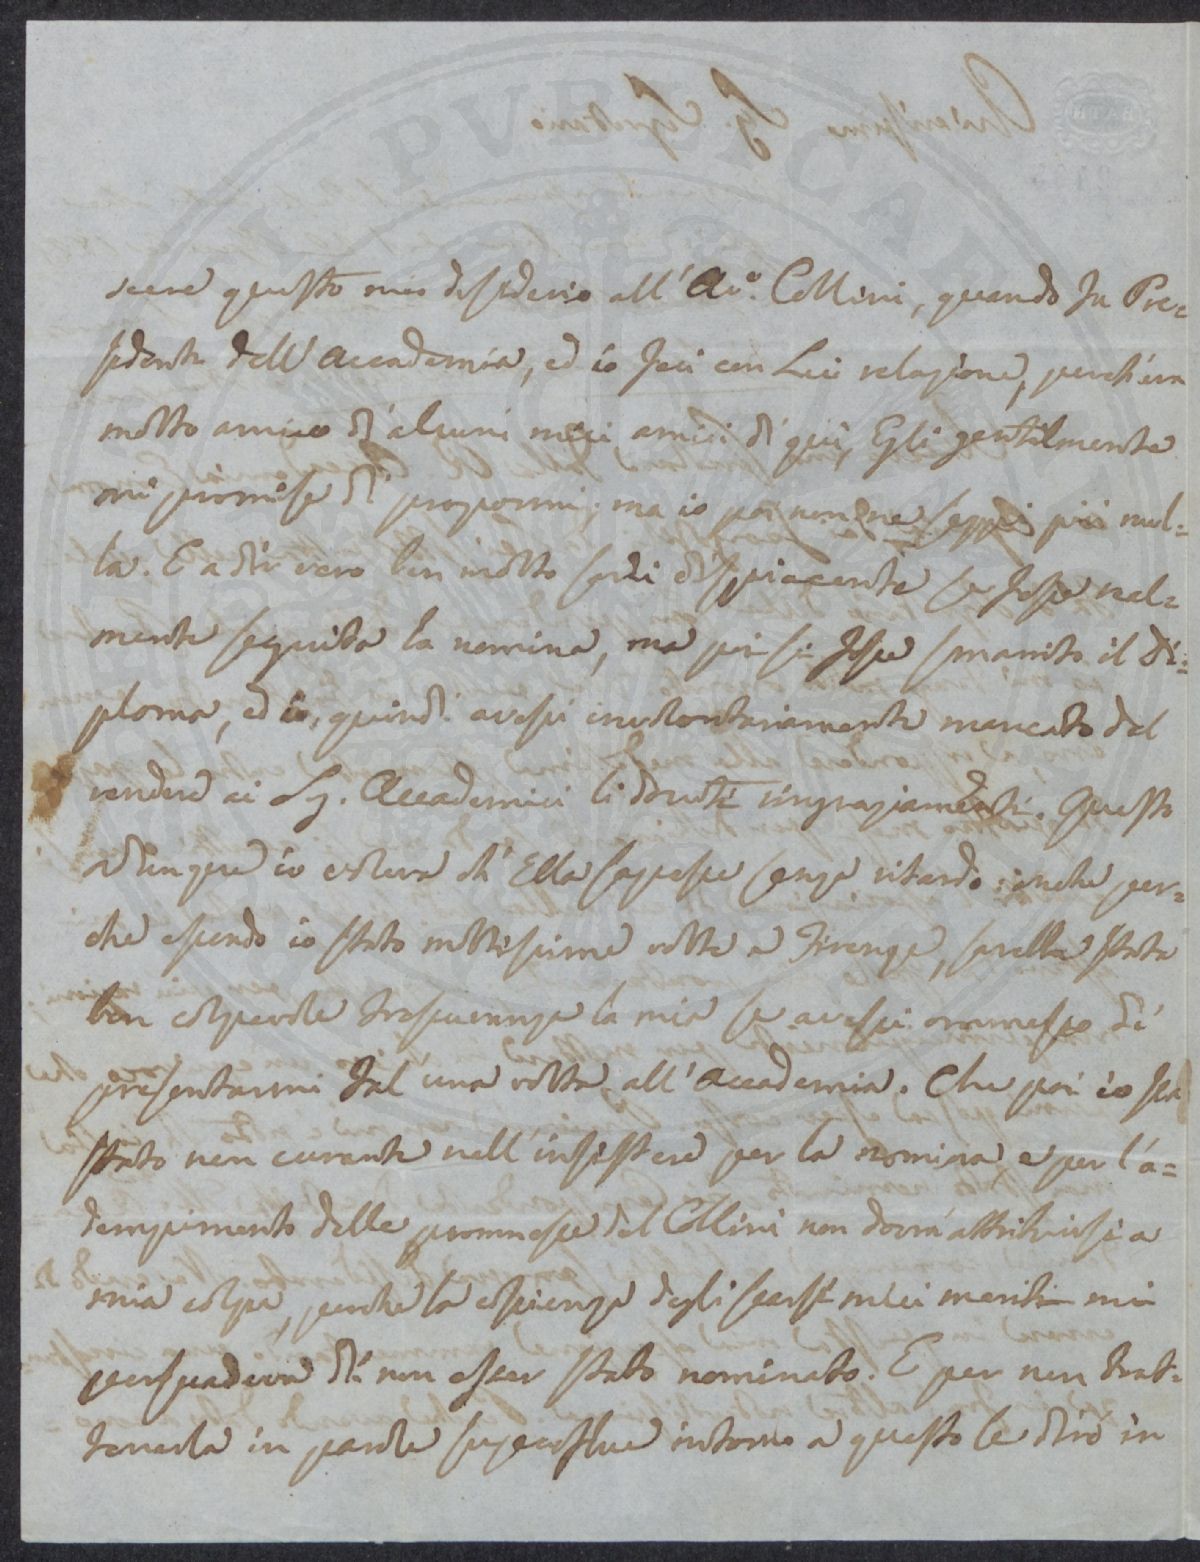 scere questo mio desiderio all'Avo. Collini, quando fu Pre=
sidente dell'Accademia, ed io feci con Lui relazione, perch'era
molto amico di alcuni miei amici di qui, Egli gentilmente
mi promise di propormi; ma io poi non ne seppi più nul=
la. E a dir vero ben molto sarei dispiacente se fosse real=
mente seguita la nomina, ma poi si fosse smarrito il Di=
ploma, ed io, quindi avessi involontariamente mancato del
rendere ai Sig. Accademici li dovuti ringraziamenti. Questo
adunque io voleva ch'Ella sapesse senza ritardo: anche per=
che essendo io stato moltissime volte a Firenze, sarebbe stata
ben colpevole trascuranza la mia se avessi ommesso di
presentarmi tal una volta all'Accademia. Che poi io sia
stato non curante nell'insistere per la nomina, e per l'a=
dempimento delle promesse del Collini non dovrà attribuirsi a
mia colpa, perchè la coscienza degli scarsi miei meriti mi
persuadeva di non esser stato nominato. E per non trat=
tenerla in parole superflue intorno a questo le dirò in